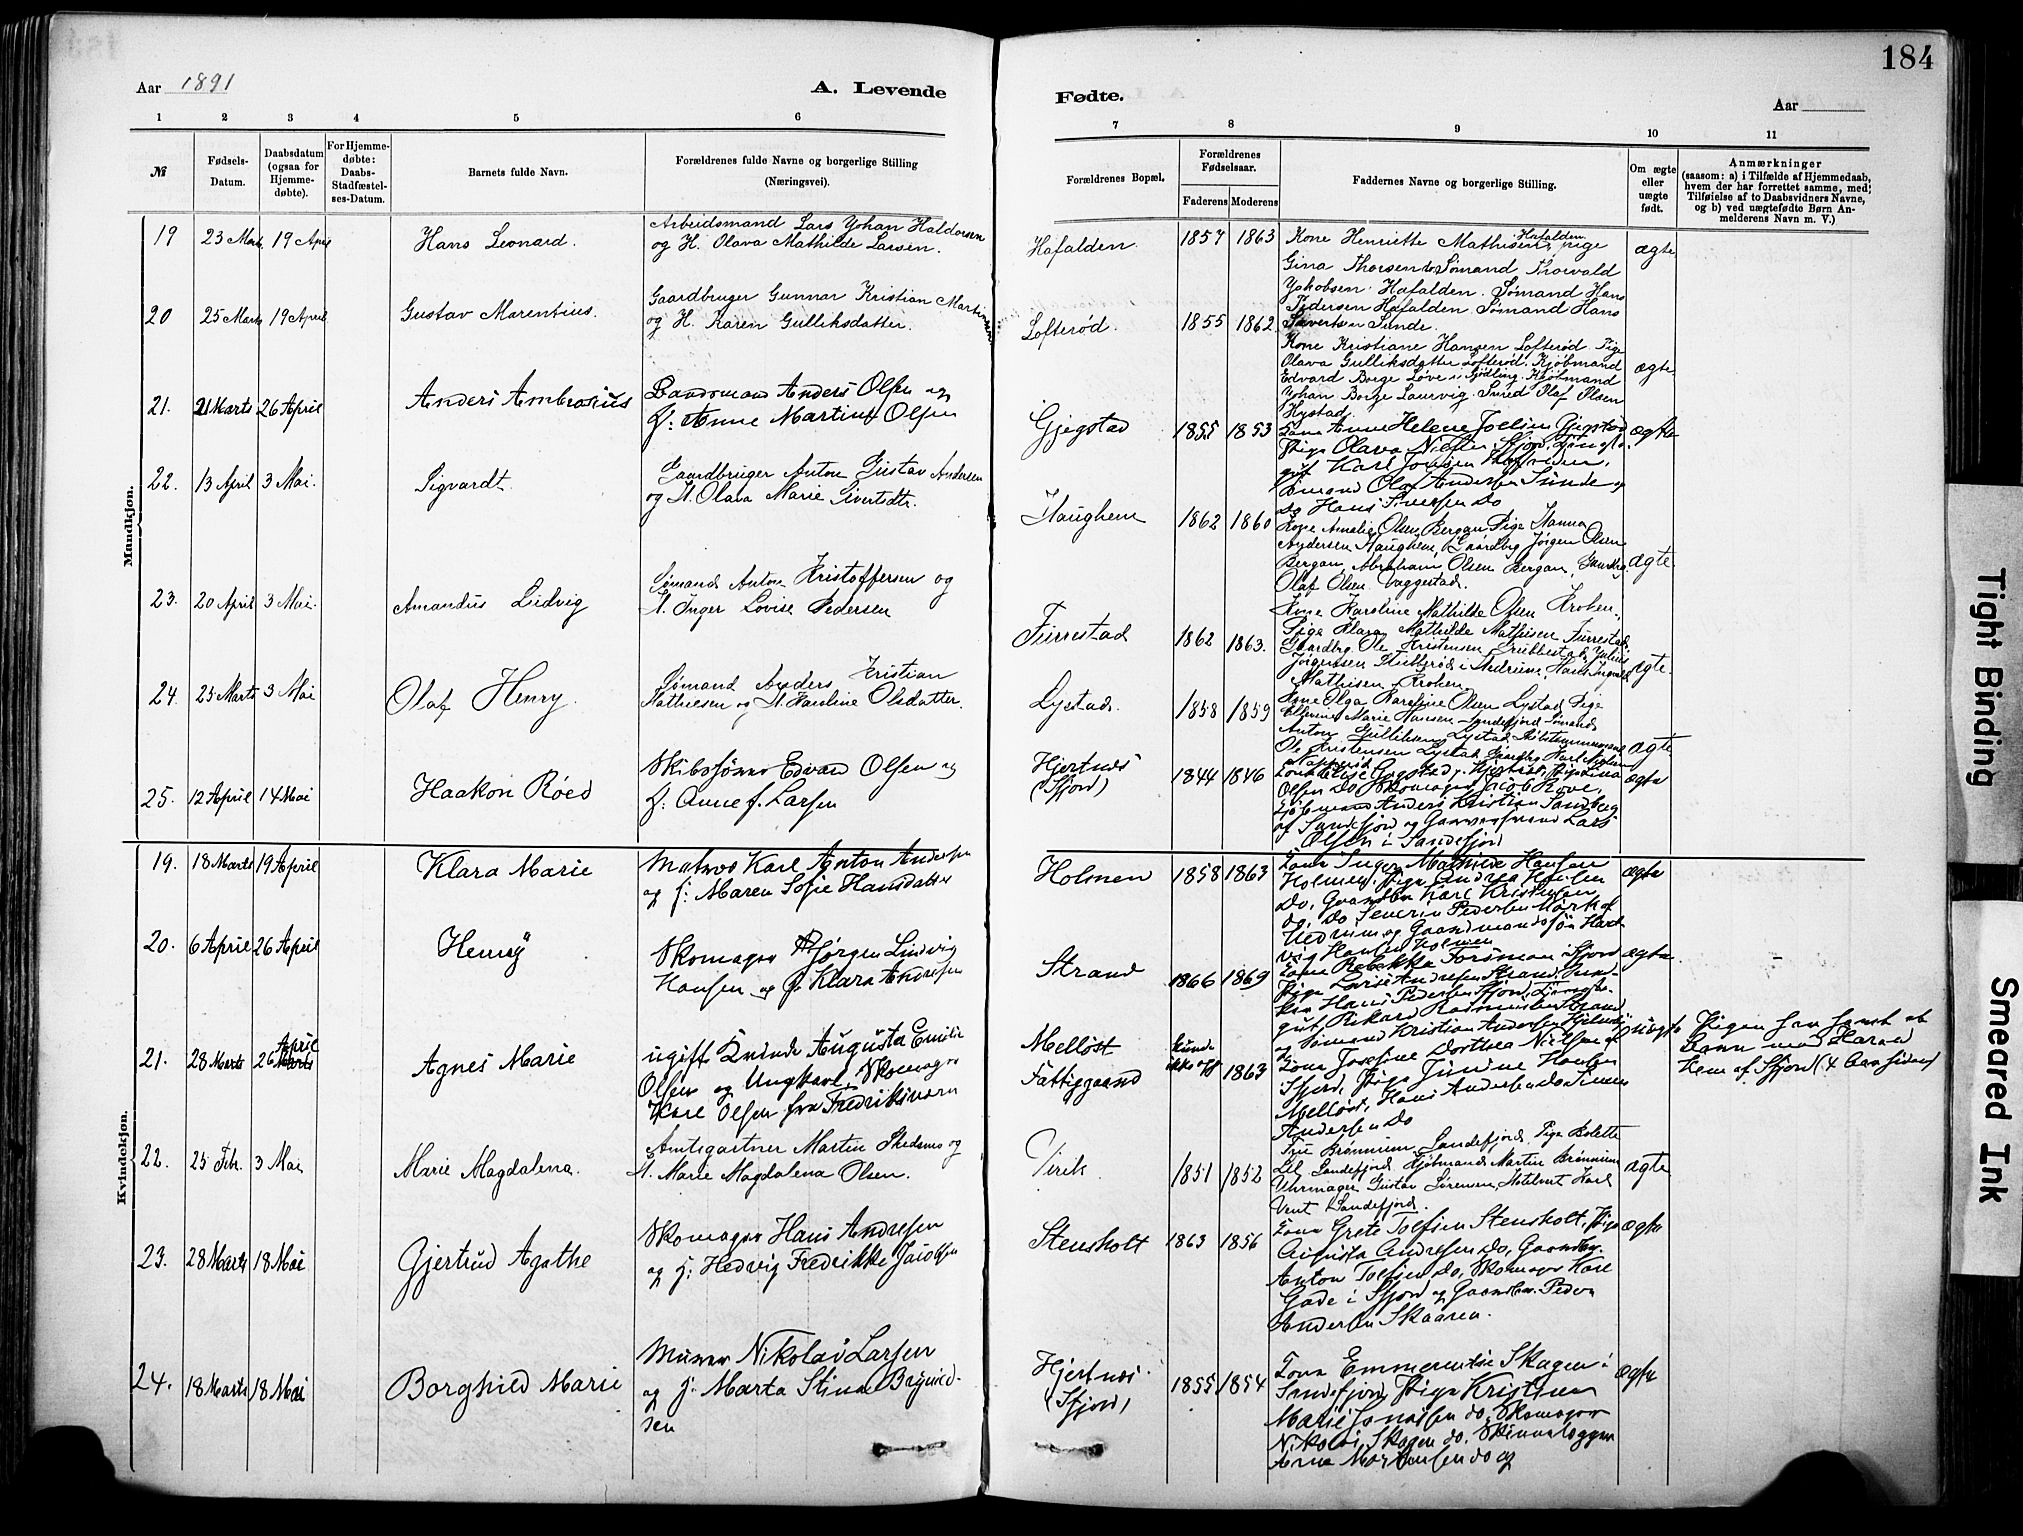 184
Aar 1891
A. Levende
Fødte.
Aar
1 2 3 4 5 6 7 8 9 10 11
№
Fødsels-
Datum.
Daabsdatum
(ogsaa for
Hjemme-
døbte).
For Hjemme-
døbte:
Daabs-
Stadfæstel-
ses-Datum.
Barnets fulde Navn.
Forældrenes fulde Navne og borgerlige Stilling
(Næringsvei).
Forældrenes Bopæl.
Forældrenes
Fødselsaar.
Faderens Moderens
Faddernes Navne og borgerlige Stilling.
Om ægte
eller
uægte
født.
Anmærkninger
(saasom: a) i Tilfælde af Hjemmedaab,
hvem der har forrettet samme, med
Tilføielse af to Daabsvidners Navne,
og b) ved uægtefødte Børn An-
melderens Navn m. V.)
Mandkjøn.
19 23 Marts 19 April Hans Leonard.
Arbeidsmand Lars Johan Haldorsen
og H. Olava Mathilde Larsen.
Hafalden 1857 1863
Kone Henriette Mathisen Hafalden, pige
Gina Thorsen do Sømand Thorvald
Jakobsen Hafalden. Sømand Hans
Pedersen Hafalden. Sømand Hans
Sivertsen Sunde.
ægte
20 25 Marts 19 April Gustav Marentius.
Gaardbruger Gunnar Kristian Martinsen
og H. Karen Gulliksdatter.
Lofterød. 1855 1862
Kone Kristiane Hansen Lofterød. Pige
Olava Gulliksdatter Lofterød. Kjøbmand
Edvard Borge Løve i Tjødling. Kjøbmand
Johan Borge Laurvig. Smed Olaf Olsen
Hystad.
ægte
21. 21 Marts 26 April Anders Ambrosius
Baadsmand Anders Olsen og
H: Anne Martine Olsen
Gjegstad 1855 1853
Kone Anne Helene Joelsen Gjegstad
Pige Olava Nielsen Sfjord,
Karl Jonsen
Sømand Olaf Andersen Sunde og
do Hans Sivertsen do
ægte
22. 13 April 3 Mai. Sigvardt.
Gaardbruger Anton Gustav Andersen
og H. Olava Marie Sivertsdtr.
Haughem 1862 1860
Kone Amalie Olsen Bergan, Pige Hanna
Andersen Haughem, Gaardbg Jørgen Olsen
Bergan, Abraham Olsen Bergan, Gaardbg
Olaf Olsen Vaggestad.
ægte
23. 20 April 3 Mai. Amandus Ludvig
Sømand Anton Kristoffersen og
H. Inger Lovise Pedersen
Furrestad 1862 1863.
Kone Karoline Mathilde Olsen Kroken,
Pige Klara Mathilde Mathisen Furrestad,
Gaardbg. Ole Kristensen Julius
Jørgensen i Andrum, Hans
Mathisen Kroken.
ægte
24. 25 Marts 3 Mai Olaf Henry.
Sømand Anders Kristian
Mathiesen og H. Karoline Olsdatter.
Lystad. 1858 1859
Kone Olga Karoline Olsen Lystad Pige
Marie Hansen Sandefjord Sømand
Anton Gulliksen Lystad
Ole Kristensen Lystad
ægte
25. 12 April 14 Mai Haakon Róed
Skibsfører Edvard Olsen og
H: Anne f. Larsen
Hjertnæs
(Sfjord) 1844 1846
Kone Elise Gogstad, Hjertnæs, Pige Lina
Olsen do Skomager Jacob Hove,
Kjøbmand Anders Kristian Sandberg
af Sandefjord og Garversvend Lars
Olsen i Sandefjord
ægte
Kvindekjøn.
19. 18 Marts 19 April Klara Marie
Matros Karl Anton Andersen
og H: Maren Sofie Hansdatter
Holmen 1858 1863
Kone Inger Mathilde Hansen
Holmen, Pige Andrea Hansen
do, Gaardbr Karl Kristensen
do, do Severin Pedersen Mørk af
Hedrum og Gaardmandssøn Hart-
vig Hansen Holmen
ægte
20. 6 April 26 April Henny
Skomager Jørgen Ludvig
Hansen og H: Klara Andersen
Strand 1866 1869
Kone Rebekka Forsman Sfjord
Pige Lovise Andresen Strand,
Hans Pedersen Sfjord,
Rikard Rasmussen Strand
og Sømand Kristian Andersen Hjertnæs
ægte
21. 28 Marts 26 April Marts Agnes Marie
ugift Kvinde Augusta Emilie
Olsen og Ungkarl, Skomager
Karl Olsen fra Fredriksværn
Melløst
Fattiggaard
1863
Kone Josefine Dorthea Nielsen af
Sfjord, Pige Jensine Hansen
Melløst, Hans Andersen do
Andersen do
uægte
Pigen har havt et
Barn med
af Sfjord (4 Aar siden)
22. 25 Feb. 3 Mai Marie Magdalena.
Amtsgartner Martin Skedsmo og
H. Marie Magdalena Olsen.
Virik 1851 1852
Frue Brønnum Sandefjord, Pige Bolette
Lil Sandefjord, Kjøbmand Martin Brønnum
Uhrmager Gustav Sørensen, Karl
Sandefjord.
ægte
23. 28 Marts 18 Mai Gjertrud Agathe
Skomager Hans Andresen
og H: Hedvig Fredrikke Jacobsen
Stensholt 1863 1856
Kone Grete Tolfsen Stensholt, Pige
Augusta Andresen do, Gaardbr.
Anton Tolfsen do, Skomager Karl
Gade i Sfjord og Gaardbr. Peder
Andersen Skaaren.
ægte
24. 18 Marts 18 Mai Borghild Marie
Murer Nikolai Larsen
og H: Marta Stina Brynild-
sen
Hjertnæs
(Sfjord) 1855 1854
Kone Emmerentse Skagen i
Sandefjord, Pige Kristine
Marie Jonassen do, Skomager
Nikolai Skagen do,
Arne Mortensen do og
ægte
Tight Binding
Smeared Ink